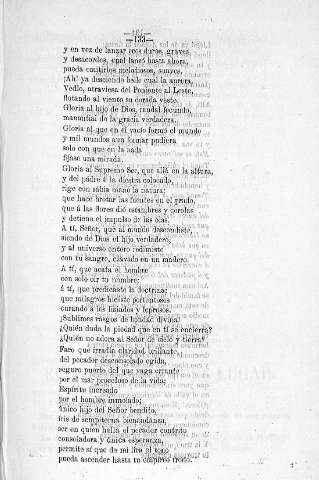 —133—
y en vez de lanzar ecos duros, graves,
y desacordes, cual lanzó hasta ahora,
pueda emitirlos melodiosos, suaves.
¡Ah! ya desciende bello cual la aurora.
Vedlo, atraviesa del Poniente al Leste,
flotando al viento su dorada veste.
Gloria al hijo de Dios, raudal fecundo,
manantial de la gracia verdadera,
Gloria al que en el vacío formó el mundo
y mil mundos aun formar pudiera
solo con que en la nada
fijase una mirada.
Gloria al Supremo Ser, que allá en la altura,
y del padre á la diestra colocado,
rige con sábia mano la natura;
que hace brotar las fuentes en el prado,
que á las flores dió estambres y corolas
y detiene el impulso de las olas.
A tí, Señor, que al mundo descendiste,
siendo de Dios el hijo verdadero,
y al universo entero redimiste
con tu sangre, clavado en un madero.
A tí, que acata el hombre
con solo oir tu nombre;
Á tí, que predicaste la doctrina;
que milagros hiciste portentosos
curando á los tullidos y leprosos.
¡Sublimes rasgos de bondad divina!
¿Quién duda la piedad que en tí se encierra?
¿Quién no adora al Señor de cielo y tierra?
Faro que irradia claridad brillante,
del pecador desconsolado egida,
seguro puerto del que vaga errante
por el mar proceloso de la vida:
Espíritu increado
por el hombre inmolado;
único hijo del Señor bendito,
íris de sempiterna bienandanza,
ser en quien halla el pecador contrito
consoladora y única esperanza,
permite sí que de mi lira el tono
pueda ascender hasta tu empíreo trono.